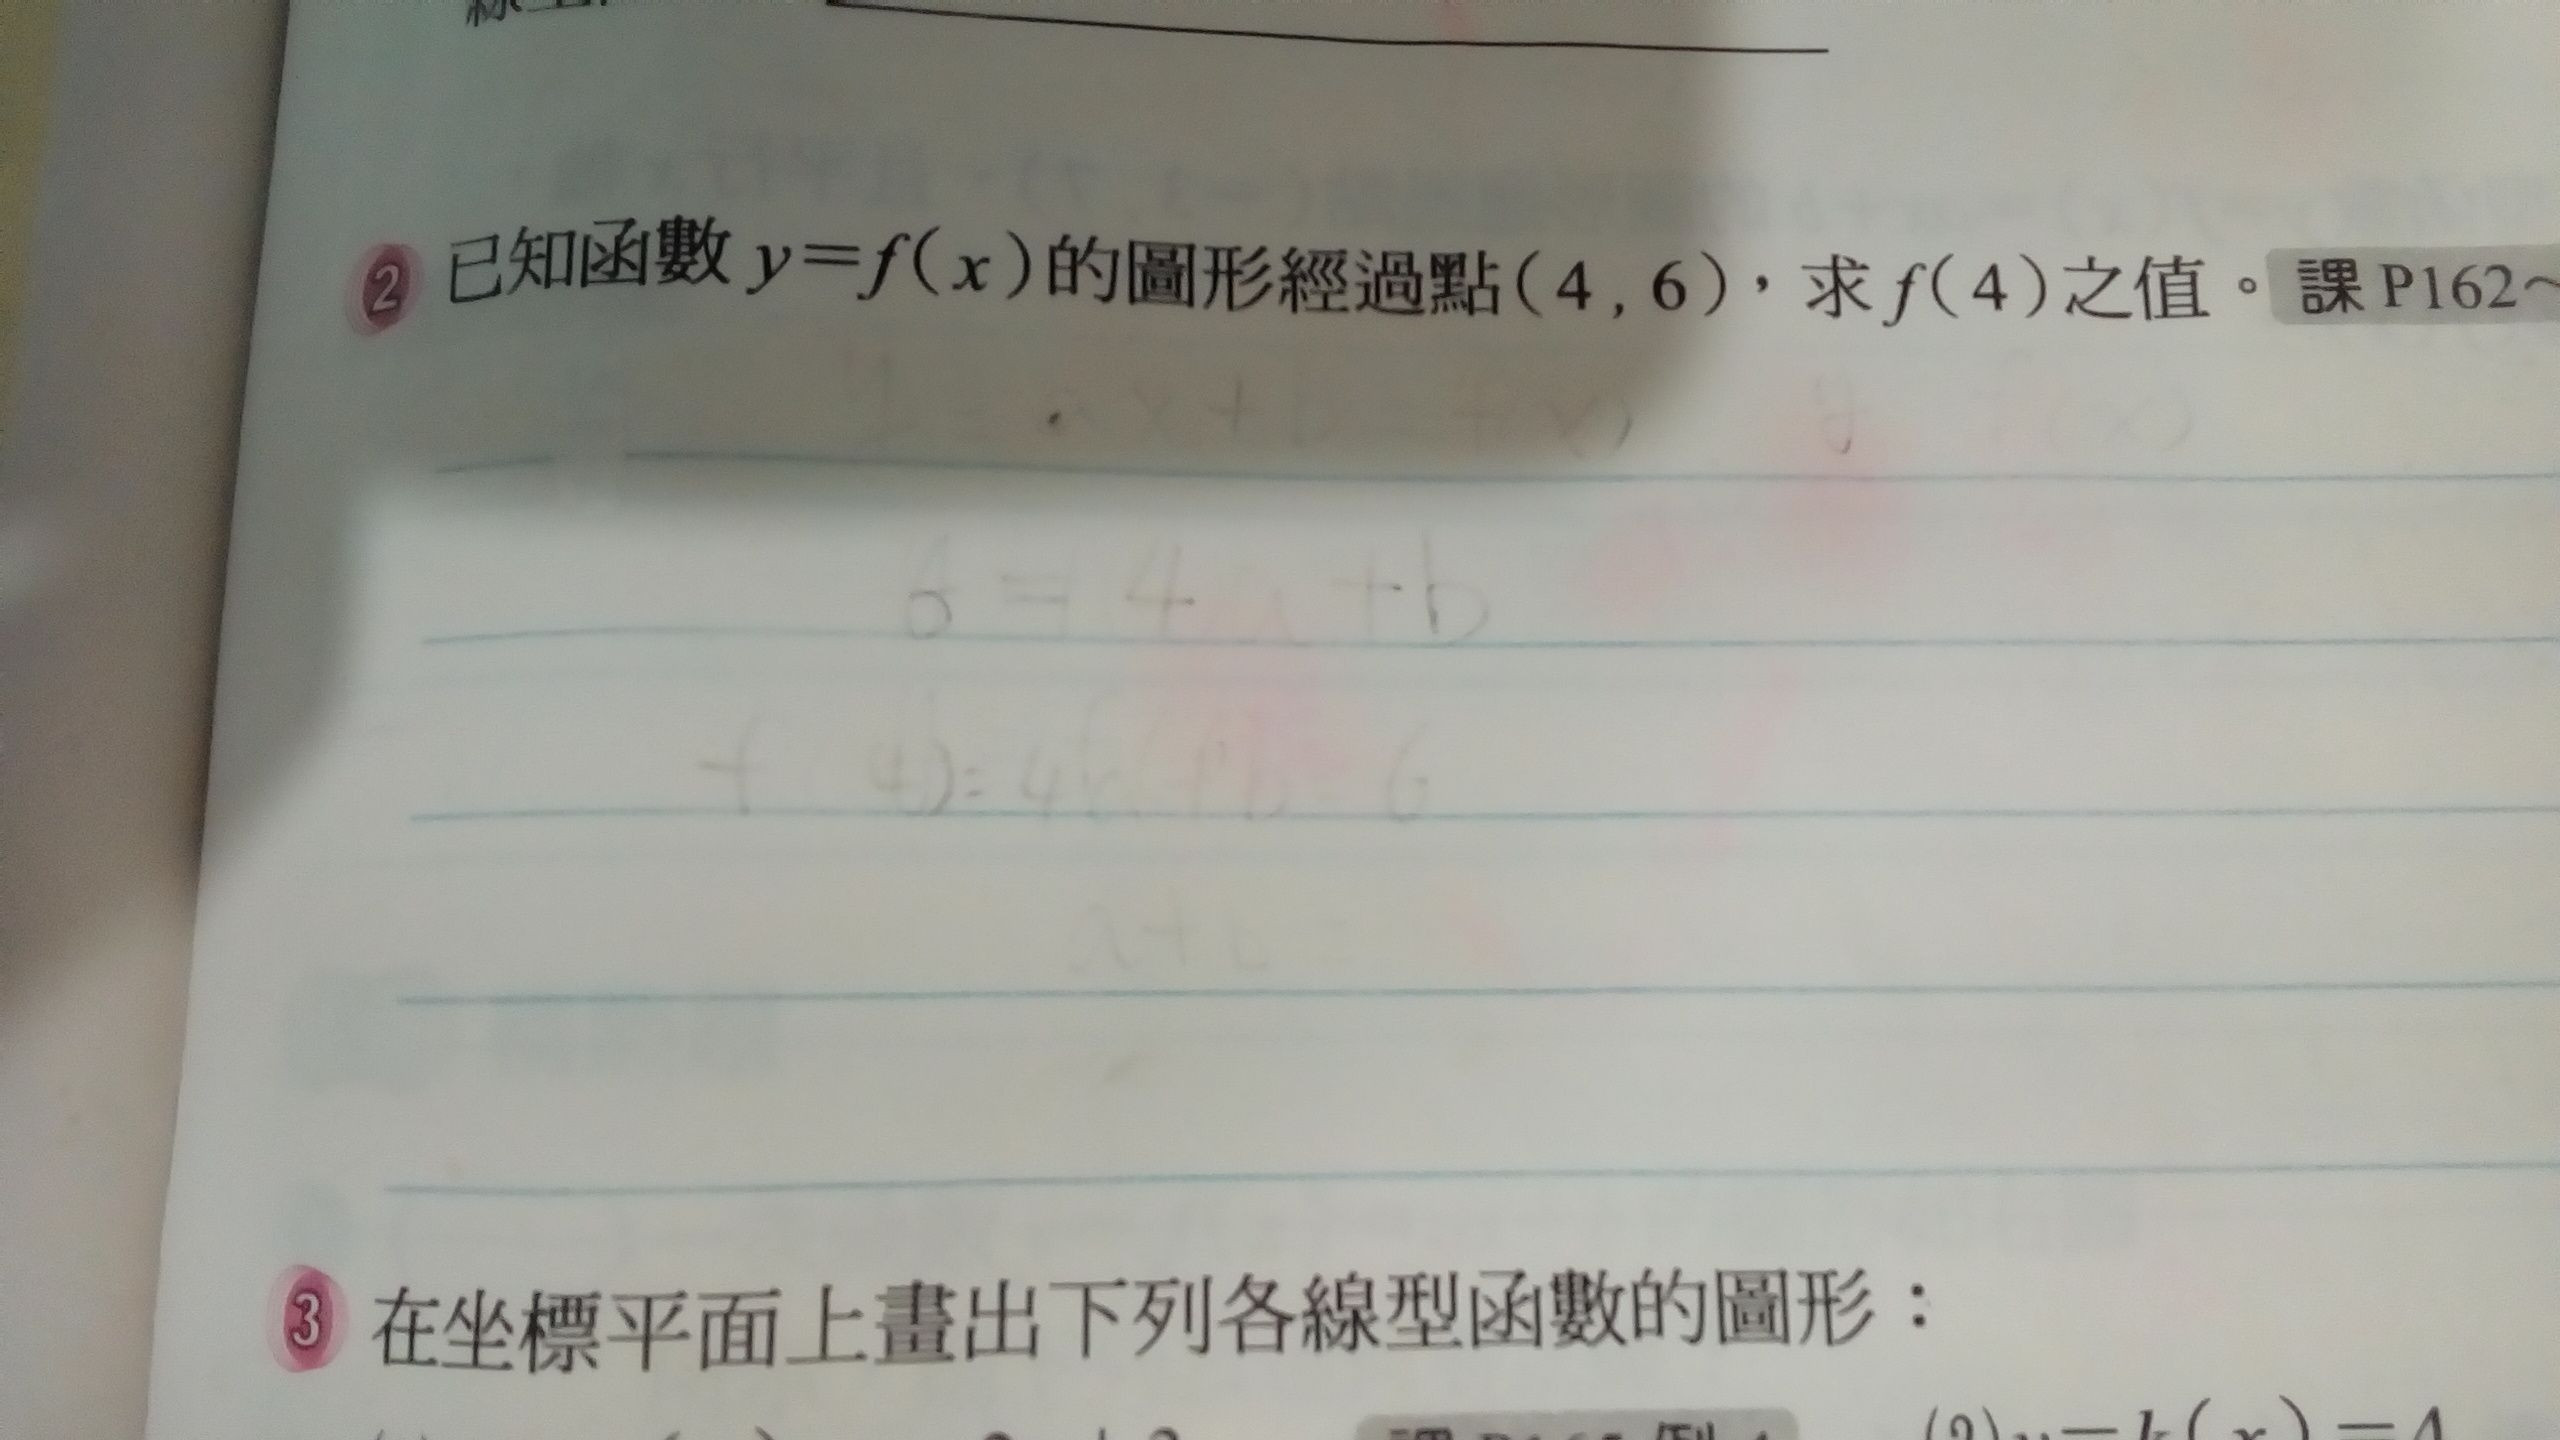 ② 已知函數 y=f(x)的圖形經過點(4,6)，求 f(4)之值。 課 P162~
6 = 4a+b
f(4)=4a+b=6
a+b=
③ 在坐標平面上畫出下列各線型函數的圖形：